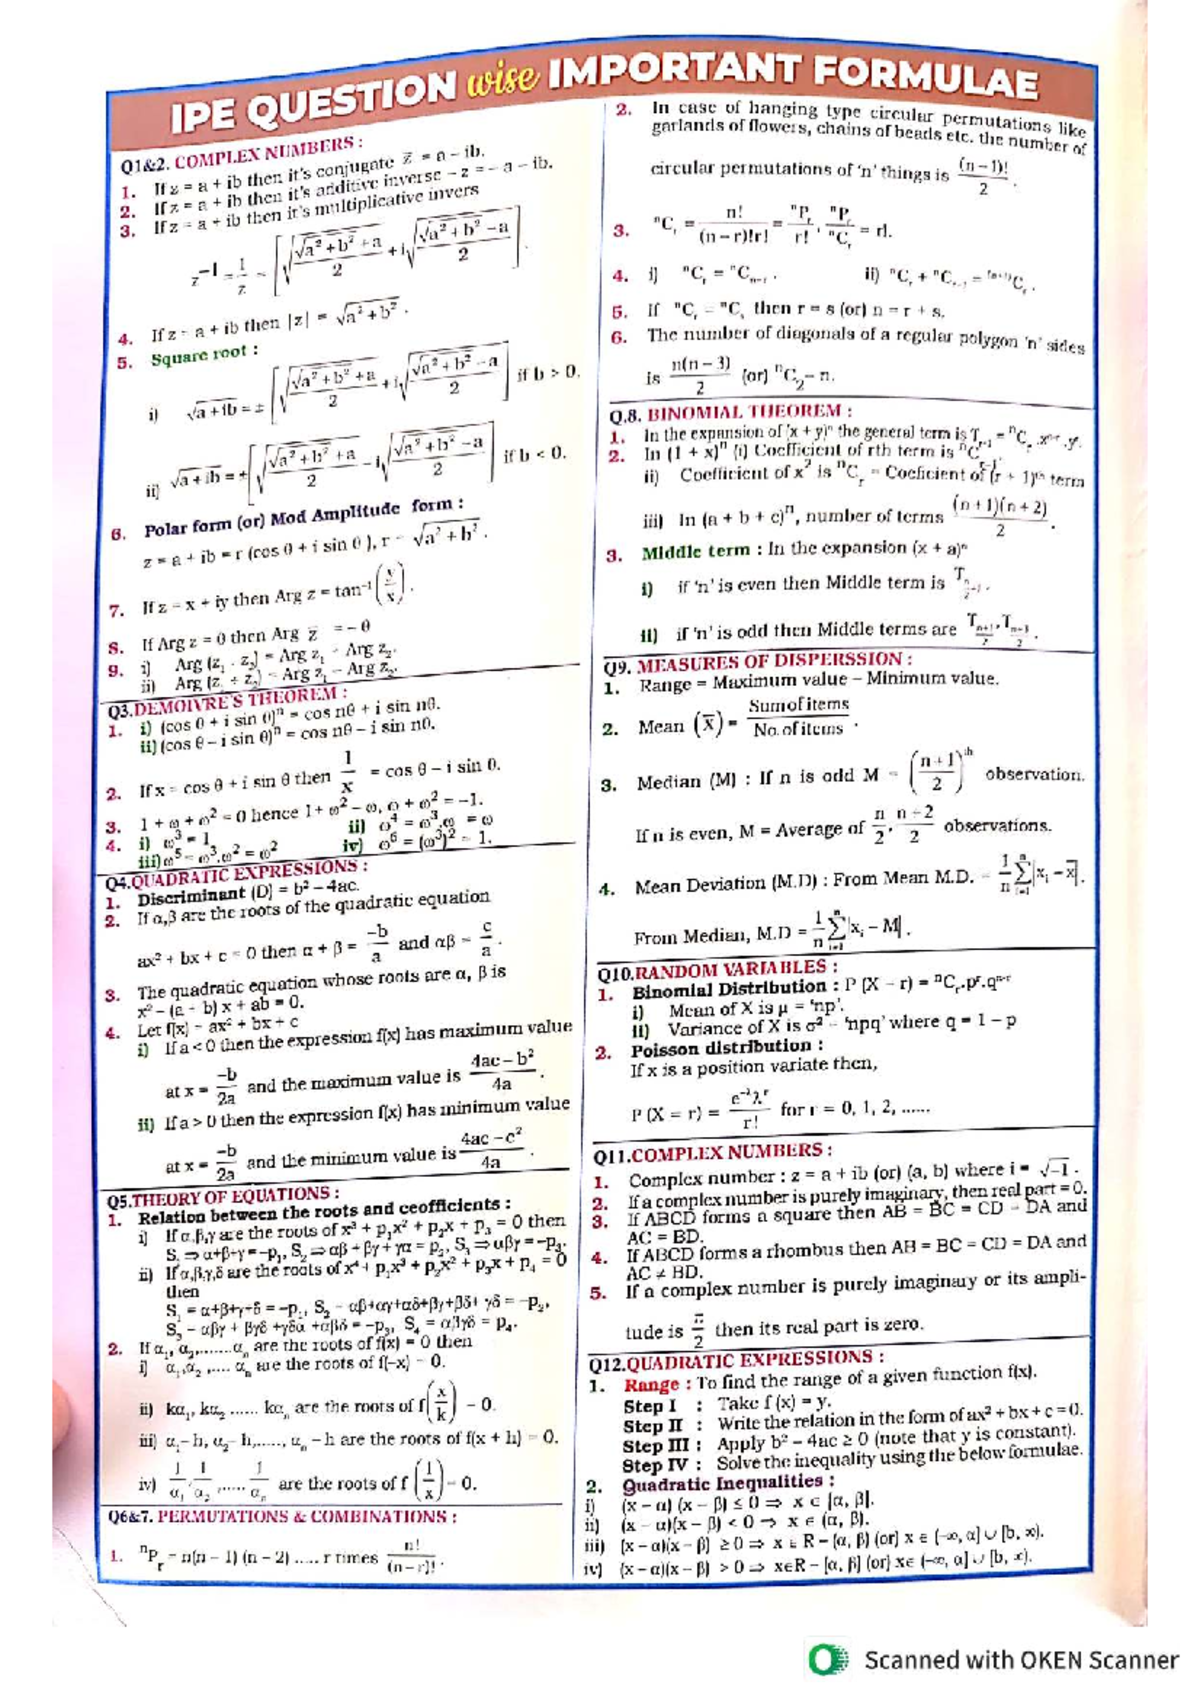 IPE QUESTION wise IMPORTANT FORMULAE
Q1&2. COMPLEX NUMBERS :
1. If z = a + ib then it's conjugate z̅ = a – ib.
2. If z = a + ib then it's additive inverse – z = – a – ib.
3. If z = a + ib then it's multiplicative invers
z⁻¹ = 1/z = [√((√(a² + b²) + a)/2) + i√((√(a² + b²) – a)/2)].
4. If z = a + ib then |z| = √(a² + b²).
5. Square root :
i) √(a + ib) = ± [√((√(a² + b²) + a)/2) + i√((√(a² + b²) – a)/2)] if b > 0.
ii) √(a + ib) = ± [√((√(a² + b²) + a)/2) – i√((√(a² + b²) – a)/2)] if b < 0.
6. Polar form (or) Mod Amplitude form :
z = a + ib = r (cos θ + i sin θ), r = √(a² + b²).
7. If z = x + iy then Arg z = tan⁻¹(y/x).
8. If Arg z = θ then Arg z̅ = – θ
9. i) Arg (z₁ . z₂) = Arg z₁ + Arg z₂.
ii) Arg (z₁ ÷ z₂) = Arg z₁ – Arg z₂.
Q3.DEMOIVRE'S THEOREM :
1. i) (cos θ + i sin θ)ⁿ = cos nθ + i sin nθ.
ii) (cos θ – i sin θ)ⁿ = cos nθ – i sin nθ.
2. If x = cos θ + i sin θ then 1/x = cos θ – i sin θ.
3. 1 + ω + ω² = 0 hence 1 + ω² = –ω, ω + ω² = –1.
4. i) ω³ = 1 ii) ω⁴ = ω³.ω = ω
iii) ω⁵ = ω³.ω² = ω² iv) ω⁶ = (ω³)² = 1.
Q4.QUADRATIC EXPRESSIONS :
1. Discriminant (D) = b² – 4ac.
2. If α,β are the roots of the quadratic equation
ax² + bx + c = 0 then α + β = –b/a and αβ = c/a.
3. The quadratic equation whose roots are α, β is
x² – (a + b) x + ab = 0.
4. Let f(x) = ax² + bx + c
i) If a < 0 then the expression f(x) has maximum value
at x = –b/2a and the maximum value is (4ac – b²)/4a.
ii) If a > 0 then the expression f(x) has minimum value
at x = –b/2a and the minimum value is (4ac – c²)/4a.
Q5.THEORY OF EQUATIONS :
1. Relation between the roots and ceofficients :
i) If α,β,γ are the roots of x³ + p₁x² + p₂x + p₃ = 0 then
S₁ ⇒ α+β+γ = –p₁, S₂ ⇒ αβ + βγ + γα = p₂, S₃ ⇒ αβγ = –p₃.
ii) If α,β,γ,δ are the roots of x⁴ + p₁x³ + p₂x² + p₃x + p₄ = 0
then
S₁ = α+β+γ+δ = –p₁, S₂ = αβ+αγ+αδ+βγ+βδ+ γδ = –p₂,
S₃ = αβγ + βγδ +γδα +αβδ = –p₃, S₄ = αβγδ = p₄.
2. If α₁, α₂,.......αₙ are the roots of f(x) = 0 then
i) α₁,α₂ ,.... αₙ are the roots of f(–x) = 0.
ii) kα₁, kα₂ ...... kαₙ are the roots of f(x/k) = 0.
iii) α₁– h, α₂– h,....., αₙ – h are the roots of f(x + h) = 0.
iv) 1/α₁, 1/α₂ ,..... 1/αₙ are the roots of f (1/x) = 0.
Q6&7. PERMUTATIONS & COMBINATIONS :
1. ⁿPᵣ = n(n – 1) (n – 2) ..... r times n!/(n – r)!.
2. In case of hanging type circular permutations like
garlands of flowers, chains of beads etc. the number of
circular permutations of 'n' things is (n – 1)!/2.
3. ⁿCᵣ = n!/((n – r)!r!) = ⁿPᵣ/r!, ⁿPᵣ/ⁿCᵣ = r!.
4. i) ⁿCᵣ = ⁿCₙ₋ᵣ. ii) ⁿCᵣ + ⁿCᵣ₋₁ = ⁽ⁿ⁺¹⁾Cᵣ.
5. If ⁿCᵣ = ⁿCₛ then r = s (or) n = r + s.
6. The number of diagonals of a regular polygon 'n' sides
is n(n – 3)/2 (or) ⁿC₂ – n.
Q.8. BINOMIAL THEOREM :
1. In the expansion of (x + y)ⁿ the general term is Tᵣ₊₁ = ⁿCᵣ.xⁿ⁻ʳ.yʳ.
2. In (1 + x)ⁿ (i) Coefficient of rth term is ⁿCᵣ₋₁
ii) Coefficient of xʳ is ⁿCᵣ = Coeficient of (r + 1)ᵗʰ term
iii) In (a + b + c)ⁿ, number of terms (n + 1)(n + 2)/2.
3. Middle term : In the expansion (x + a)ⁿ
i) if 'n' is even then Middle term is T₍ₙ/₂₊₁₎.
ii) if 'n' is odd then Middle terms are T₍ₙ₊₁₎/₂, T₍ₙ₊₃₎/₂.
Q9. MEASURES OF DISPERSSION :
1. Range = Maximum value – Minimum value.
2. Mean (x̅) = Sum of items/No. of items.
3. Median (M) : If n is odd M = ((n + 1)/2)ᵗʰ observation.
If n is even, M = Average of n/2, (n + 2)/2 observations.
4. Mean Deviation (M.D) : From Mean M.D. = 1/n Σⁿᵢ₌₁|xᵢ – x̅|.
From Median, M.D = 1/n Σⁿᵢ₌₁|xᵢ – M|.
Q10.RANDOM VARIABLES :
1. Binomial Distribution : P (X = r) = ⁿCᵣ.pʳ.qⁿ⁻ʳ
i) Mean of X is μ = 'np'.
ii) Variance of X is σ² = 'npq' where q = 1 – p
2. Poisson distribution :
If x is a position variate then,
P (X = r) = e^(–λ)λʳ/r! for r = 0, 1, 2, ......
Q11.COMPLEX NUMBERS :
1. Complex number : z = a + ib (or) (a, b) where i = √–1.
2. If a complex number is purely imaginary, then real part = 0.
3. If ABCD forms a square then AB = BC = CD = DA and
AC = BD.
4. If ABCD forms a rhombus then AB = BC = CD = DA and
AC ≠ BD.
5. If a complex number is purely imaginary or its ampli-
tude is π/2 then its real part is zero.
Q12.QUADRATIC EXPRESSIONS :
1. Range : To find the range of a given function f(x).
Step I : Take f (x) = y.
Step II : Write the relation in the form of ax² + bx + c = 0.
Step III : Apply b² – 4ac ≥ 0 (note that y is constant).
Step IV : Solve the inequality using the below formulae.
2. Quadratic Inequalities :
i) (x – α) (x – β) ≤ 0 ⇒ x ∈ [α, β].
ii) (x – α)(x – β) < 0 ⇒ x ∈ (α, β).
iii) (x – α)(x – β) ≥ 0 ⇒ x ∈ R – (α, β) (or) x ∈ (–∞, α] ∪ [b, ∞).
iv) (x – α)(x – β) > 0 ⇒ x∈R – [α, β] (or) x∈ (–∞, α] ∪ [b, ∞).
Scanned with OKEN Scanner